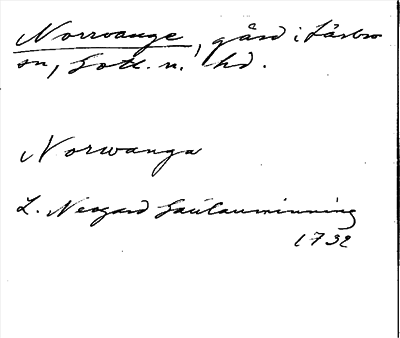 Norrvange, gård i Lärbro
sn, Gotl. n. hd.
Norwanga
L. Neogard Gautauminning
1732